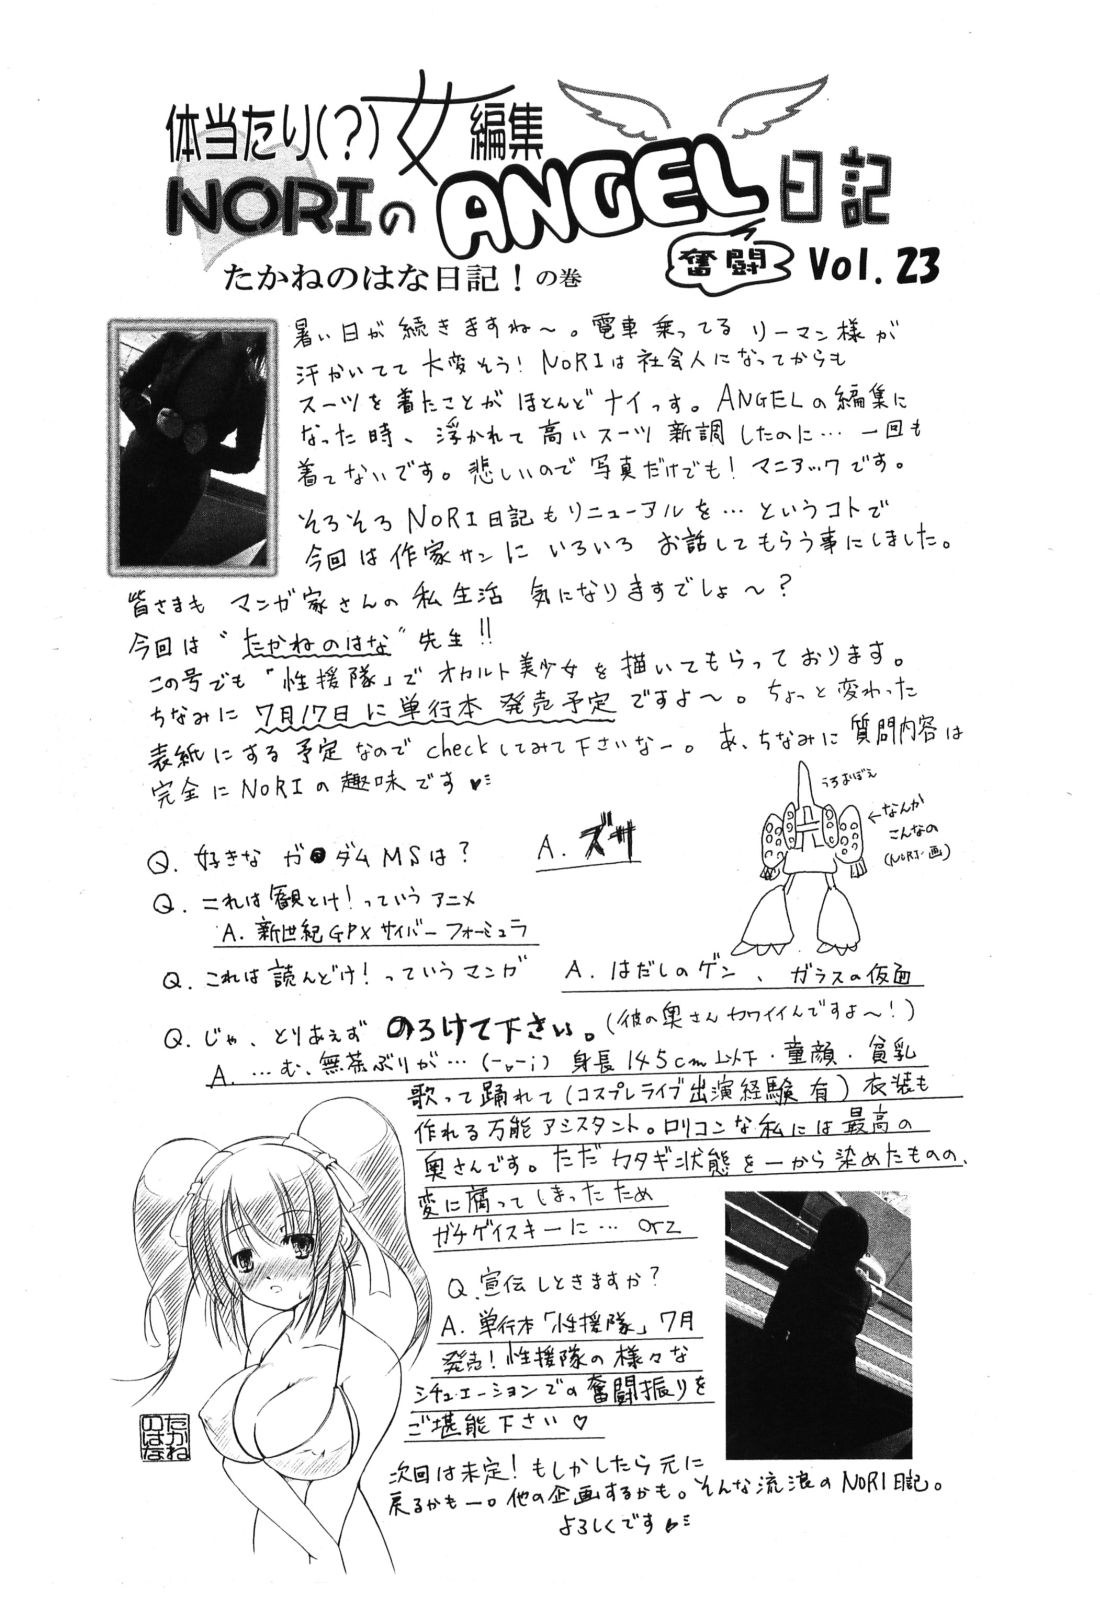 体当たり(?)女編集
NORIのANGEL日記
奮闘 Vol.23
たかねのはな日記!の巻
暑い日が続きますね〜。電車乗ってるリーマン様が
汗かいてて大変そう!NORIは社会人になってからも
スーツを着たことがほとんどナイっす。ANGELの編集に
なった時、浮かれて高いスーツ新調したのに…一回も
着てないです。悲しいので写真だけでも!マニアックです。
そろそろNORI日記もリニューアルを…というコトで
今回は作家サンにいろいろお話してもらう事にしました。
皆さまもマンガ家さんの私生活気になりますでしょ〜?
今回は"たかねのはな"先生!!
この号でも「性援隊」でオカルト美少女を描いてもらっております。
ちなみに7月17日に単行本発売予定ですよ〜。ちょっと変わった
表紙にする予定なのでcheckしてみて下さいなー。あ、ちなみに質問内容は
完全にNORIの趣味です♥
うろおぼえ
←なんか
こんなの
(NORI・画)
Q. 好きなガ●ダムMSは?
A. ズサ
Q. これは観とけ!っていうアニメ
A. 新世紀GPXサイバーフォーミュラ
Q. これは読んどけ!っていうマンガ
A. はだしのゲン、ガラスの仮面
Q. じゃ、とりあえずのろけて下さい。(彼の奥さんカワイイんですよ〜!)
A. …む、無茶ぶりが… 身長145cm以下・童顔・貧乳
歌って踊れて(コスプレライブ出演経験有)衣装も
作れる万能アシスタント。ロリコンな私には最高の
奥さんです。ただカタギ状態を一から染めたものの、
変に腐ってしまったため
ガチゲイスキーに… orz
Q. 宣伝しときますか?
A. 単行本「性援隊」7月
発売!性援隊の様々な
シチュエーションでの奮闘振りを
ご堪能下さい♡
たかね
のはな
次回は未定!もしかしたら元に
戻るかもー。他の企画するかも。そんな流浪のNORI日記。
よろしくです♥